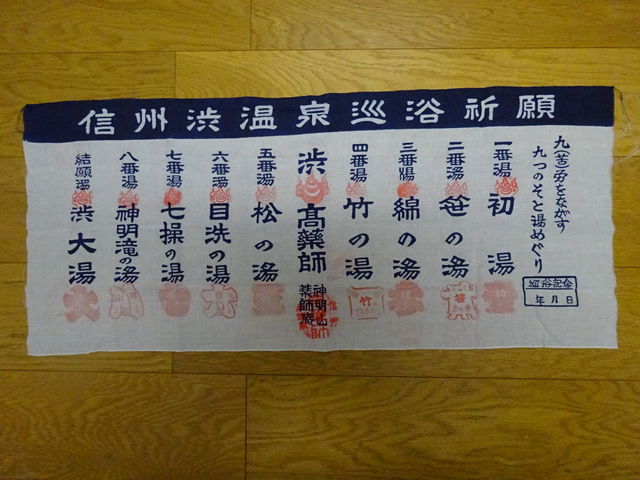 信州渋温泉巡浴祈願
九(苦)労をながす
九つのそと湯めぐり
巡浴記念
年月日
一番湯 初湯
二番湯 笹の湯
三番湯 綿の湯
四番湯 竹の湯
渋 髙薬師
神明山
薬師庵
五番湯 松の湯
六番湯 目洗の湯
七番湯 七操の湯
八番湯 神明滝の湯
結願湯 渋大湯